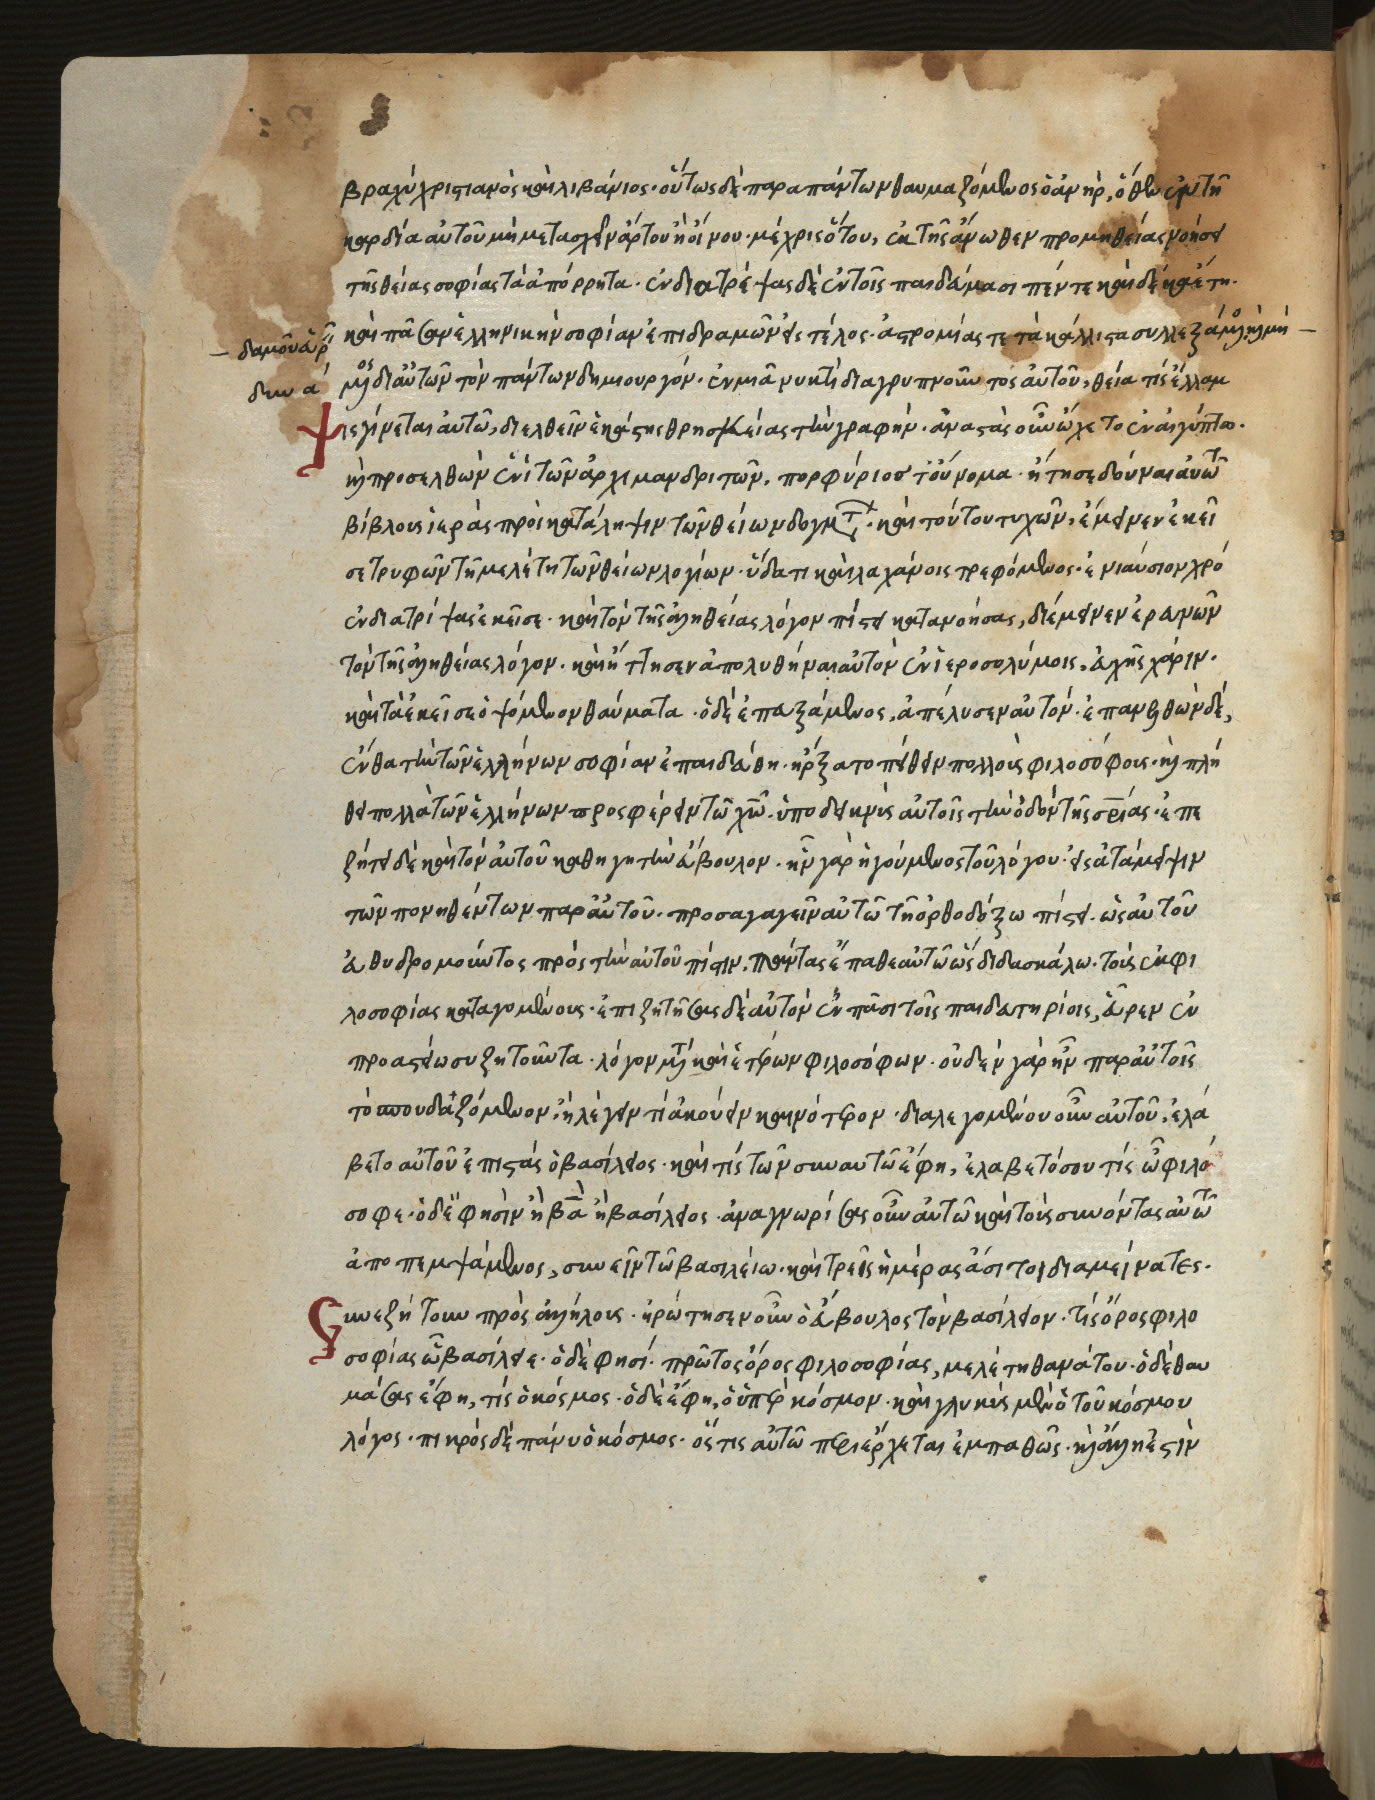 βραχὺ χριστιανὸς καὶ λιβάνιος· οὕτως δὲ παρα πάντων θαυμαζόμενος ὁ ἀνὴρ, ὅθεν ἐν τῆ
καρδία αὐτοῦ μὴ μετασχεῖν ἄρτου ἢ οἴνου· μέχρις ὅτου, ἐκ τῆς ἄνωθεν προμηθείας νοήσει
τῆς θείας σοφίας τὰ ἀπόρρητα· ἐνδιατρέψας δὲ ἐν τοῖς παιδεύμασι πέντε καὶ δέκα ἔτη·
καὶ πᾶσαν ἑλληνικὴν σοφίαν ἐπιδραμῶν εἰς τέλος· ἀστρομίας τε τὰ κάλλιστα συλλεξάμενος καὶ μὴ
δι αὐτῶν τὸν πάντων δημιουργόν· ἐν μιᾶ νυκτὶ διαγρυπνοῦντος αὐτοῦ, θεία τίς ἔλλαμ
ψις γίνεται αὐτῶ, διελθεῖν ἑκάστης θρησκείας τὴν γραφήν· ἀναστὰς οὖν ὤχετο ἐν αἰγύπτω·
καὶ προσελθὼν ἑνὶ τῶν ἀρχιμανδριτῶν, πορφύριος τοὔνομα· ἤτησε δοῦναι αὐτῶ
βίβλους ἱερὰς πρὸς κατάληψιν τῶν θείων δογματ· καὶ τούτου τυχῶν, ἔμεινεν ἐκεῖ
σε τρυφῶν τῆ μελέτη τῶν θείων λογίων· ὕδατι καὶ λαχάνοις τρεφόμενος· ἐνιαύσιον χρό
ἐνδιατρίψας ἐκεῖσε· καὶ τὸν τῆς ἀληθείας λόγον πίστει κατανοήσας, διέμεινεν ἐρευνῶν
τὸν τῆς ἀληθείας λόγον· καὶ ἤτησεν ἀπολυθήναι αὐτὸν ἐν ἱεροσολύμοις, εὐχῆς χάριν·
καὶ τὰ ἐκεῖσε ὀψόμενον θαύματα· ὁ δὲ ἐπευξάμενος, ἀπέλυσεν αὐτόν· ἐπανελθὼν δὲ,
ἔνθα τὴν τῶν ἑλλήνων σοφίαν ἐπαιδεύθη· ἤρξατο πείθειν πολλοὺς φιλοσόφους· καὶ πλή
θει πολλὰ τῶν ἑλλήνων προσφέρειν τῶ χῶ· ὑποδεικνὺς αὐτοῖς τὴν ὁδὸν τῆς σριας· ἐπε
ζήτει δὲ καὶ τὸν αὐτοῦ καθηγητὴν εὔβουλον· ἦν γὰρ ἡγούμενος τοῦ λόγου· εἰς ἀντάμειψιν
τῶν πονηθέντων παρ αὐτοῦ· προσαγαγεῖν αὐτῶ τῆ ὀρθοδόξω πίστει· ὡς αὐτοῦ
εὐθυδρομοῦντος πρὸς τὴν αὐτοῦ πίστιν, πάντας ἔπαθε αὐτῶ ὡς διδασκάλω· τοὺς ἐκ φι
λοσοφίας καταγομένους· ἐπιζητῆσας δὲ αὐτὸν ἐν πᾶσι τοῖς παιδευτηρίοις, εὗρεν ἐν
προαστείω συζητοῦντα· λόγον μετὰ καὶ ἑτέρων φιλοσόφων· οὐδὲν γὰρ ἦν παρ αὐτοῖς
τὸ σπουδαζόμενον, ἢ λέγειν τί ἀκούειν καινότερον· διαλεγομένου οὖν αὐτοῦ, ἐλά
βετο αὐτοῦ ἐπιστὰς ὁ βασίλειος· καὶ τίς τῶν συν αυτῶ ἔφη, ἐλαβετό σου τίς ὦ φιλό
σοφε· ὁ δὲ φησὶν ἢ βα ἢ βασίλειος· ἀναγνωρίσας οὖν αὐτῶ καὶ τοὺς συνόντας αὐτῶ
ἀποπεμψάμενος, συνεῖν τῶ βασιλείω· καὶ τρεῖς ἡμέρας ἄσιτοι διαμείνατες·
Συνεζήτουν πρὸς ἀλήλους· ἠρώτησεν οὖν ὁ εὔβουλος τὸν βασίλειον· τίς ὅρος φιλο
σοφίας ὦ βασίλειε· ὁ δὲ φησί· πρῶτος ὅρος φιλοσοφίας, μελέτη θανάτου· ὁ δὲ θαυ
μάσας ἔφη, τίς ὁ κόσμος· ὁ δὲ ἔφη, ὁ ὑπὲρ κόσμον· καὶ γλυκὺς μὲν ὁ τοῦ κόσμου
λόγος· πικρὸς δὲ πάνυ ὁ κόσμος· ὅστις αὐτῶ περιέρχεται ἐμπαθῶς· καὶ ἄλλη ἐστὶν